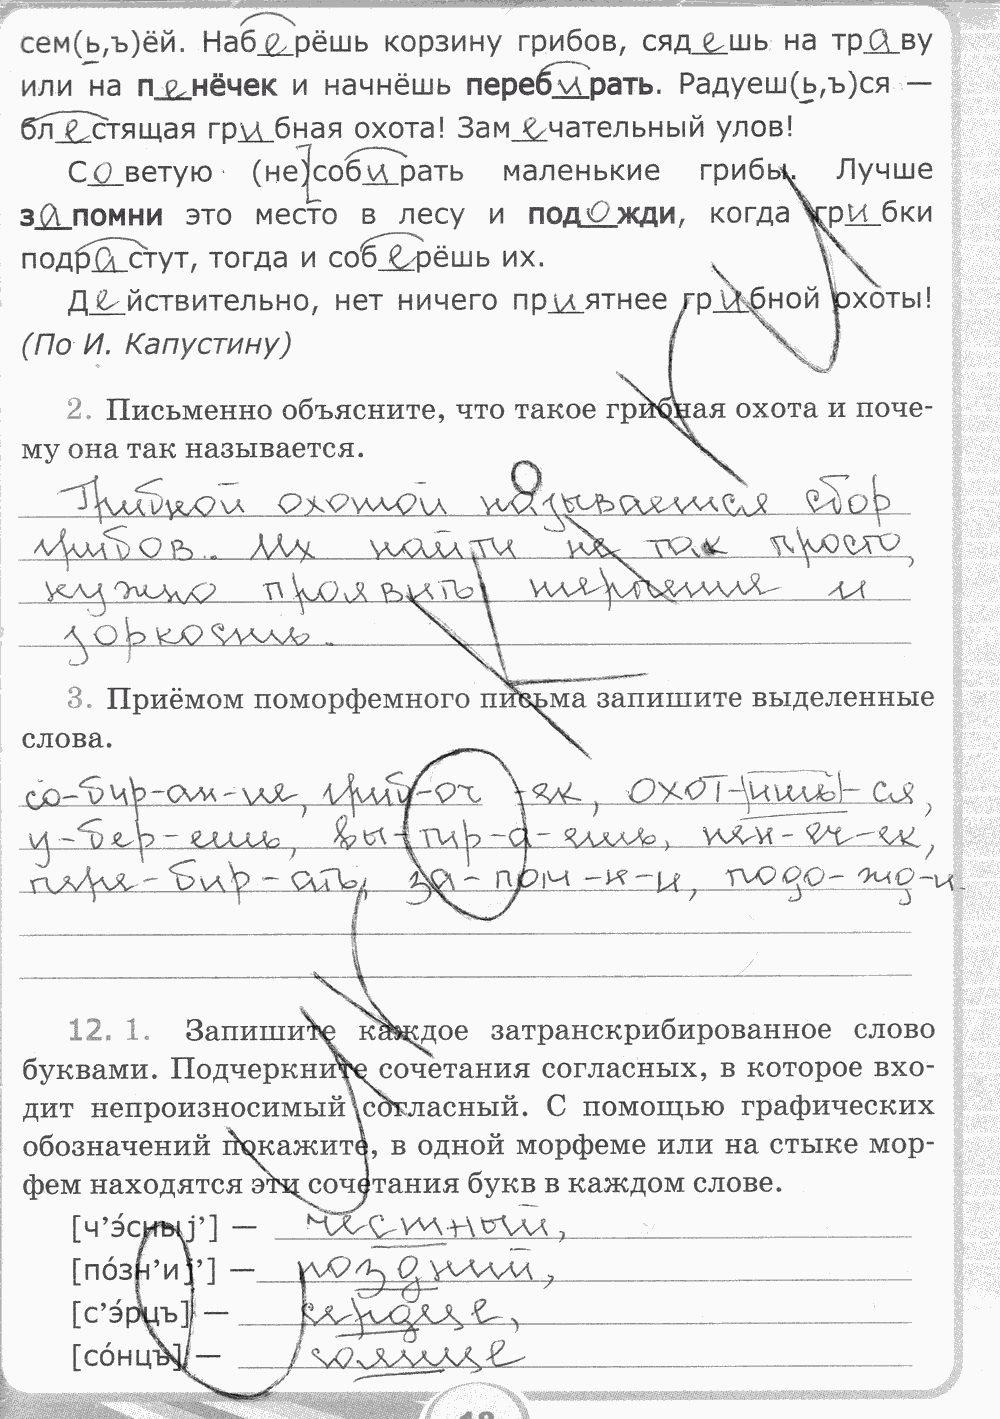 сем(ь,ъ)ёй. Наберёшь корзину грибов, сядешь на траву
или на пенёчек и начнёшь перебирать. Радуеш(ь,ъ)ся —
блестящая грибная охота! Замечательный улов!
Советую (не)собирать маленькие грибы. Лучше
запомни это место в лесу и подожди, когда грибки
подрастут, тогда и соберёшь их.
Действительно, нет ничего приятнее грибной охоты!
(По И. Капустину)
2. Письменно объясните, что такое грибная охота и поче-
му она так называется.
Грибной охотой называется сбор
грибов. Их найти не так просто,
нужно проявить терпение и
зоркость.
3. Приёмом поморфемного письма запишите выделенные
слова.
со-бир-ан-ие, гриб-оч -ек, охот-ишь-ся,
у-бер-ешь, вы-тир-а-ешь, пен-еч-ек,
пере-бир-ать, за-пом-н-и, подо-жд-и.
12. 1. Запишите каждое затранскрибированное слово
буквами. Подчеркните сочетания согласных, в которое вхо-
дит непроизносимый согласный. С помощью графических
обозначений покажите, в одной морфеме или на стыке мор-
фем находятся эти сочетания букв в каждом слове.
[ч’э́сныj’] — честный,
[по́зн’иj’] — поздний,
[с’э́рцъ] — сердце,
[со́нцъ] — солнце